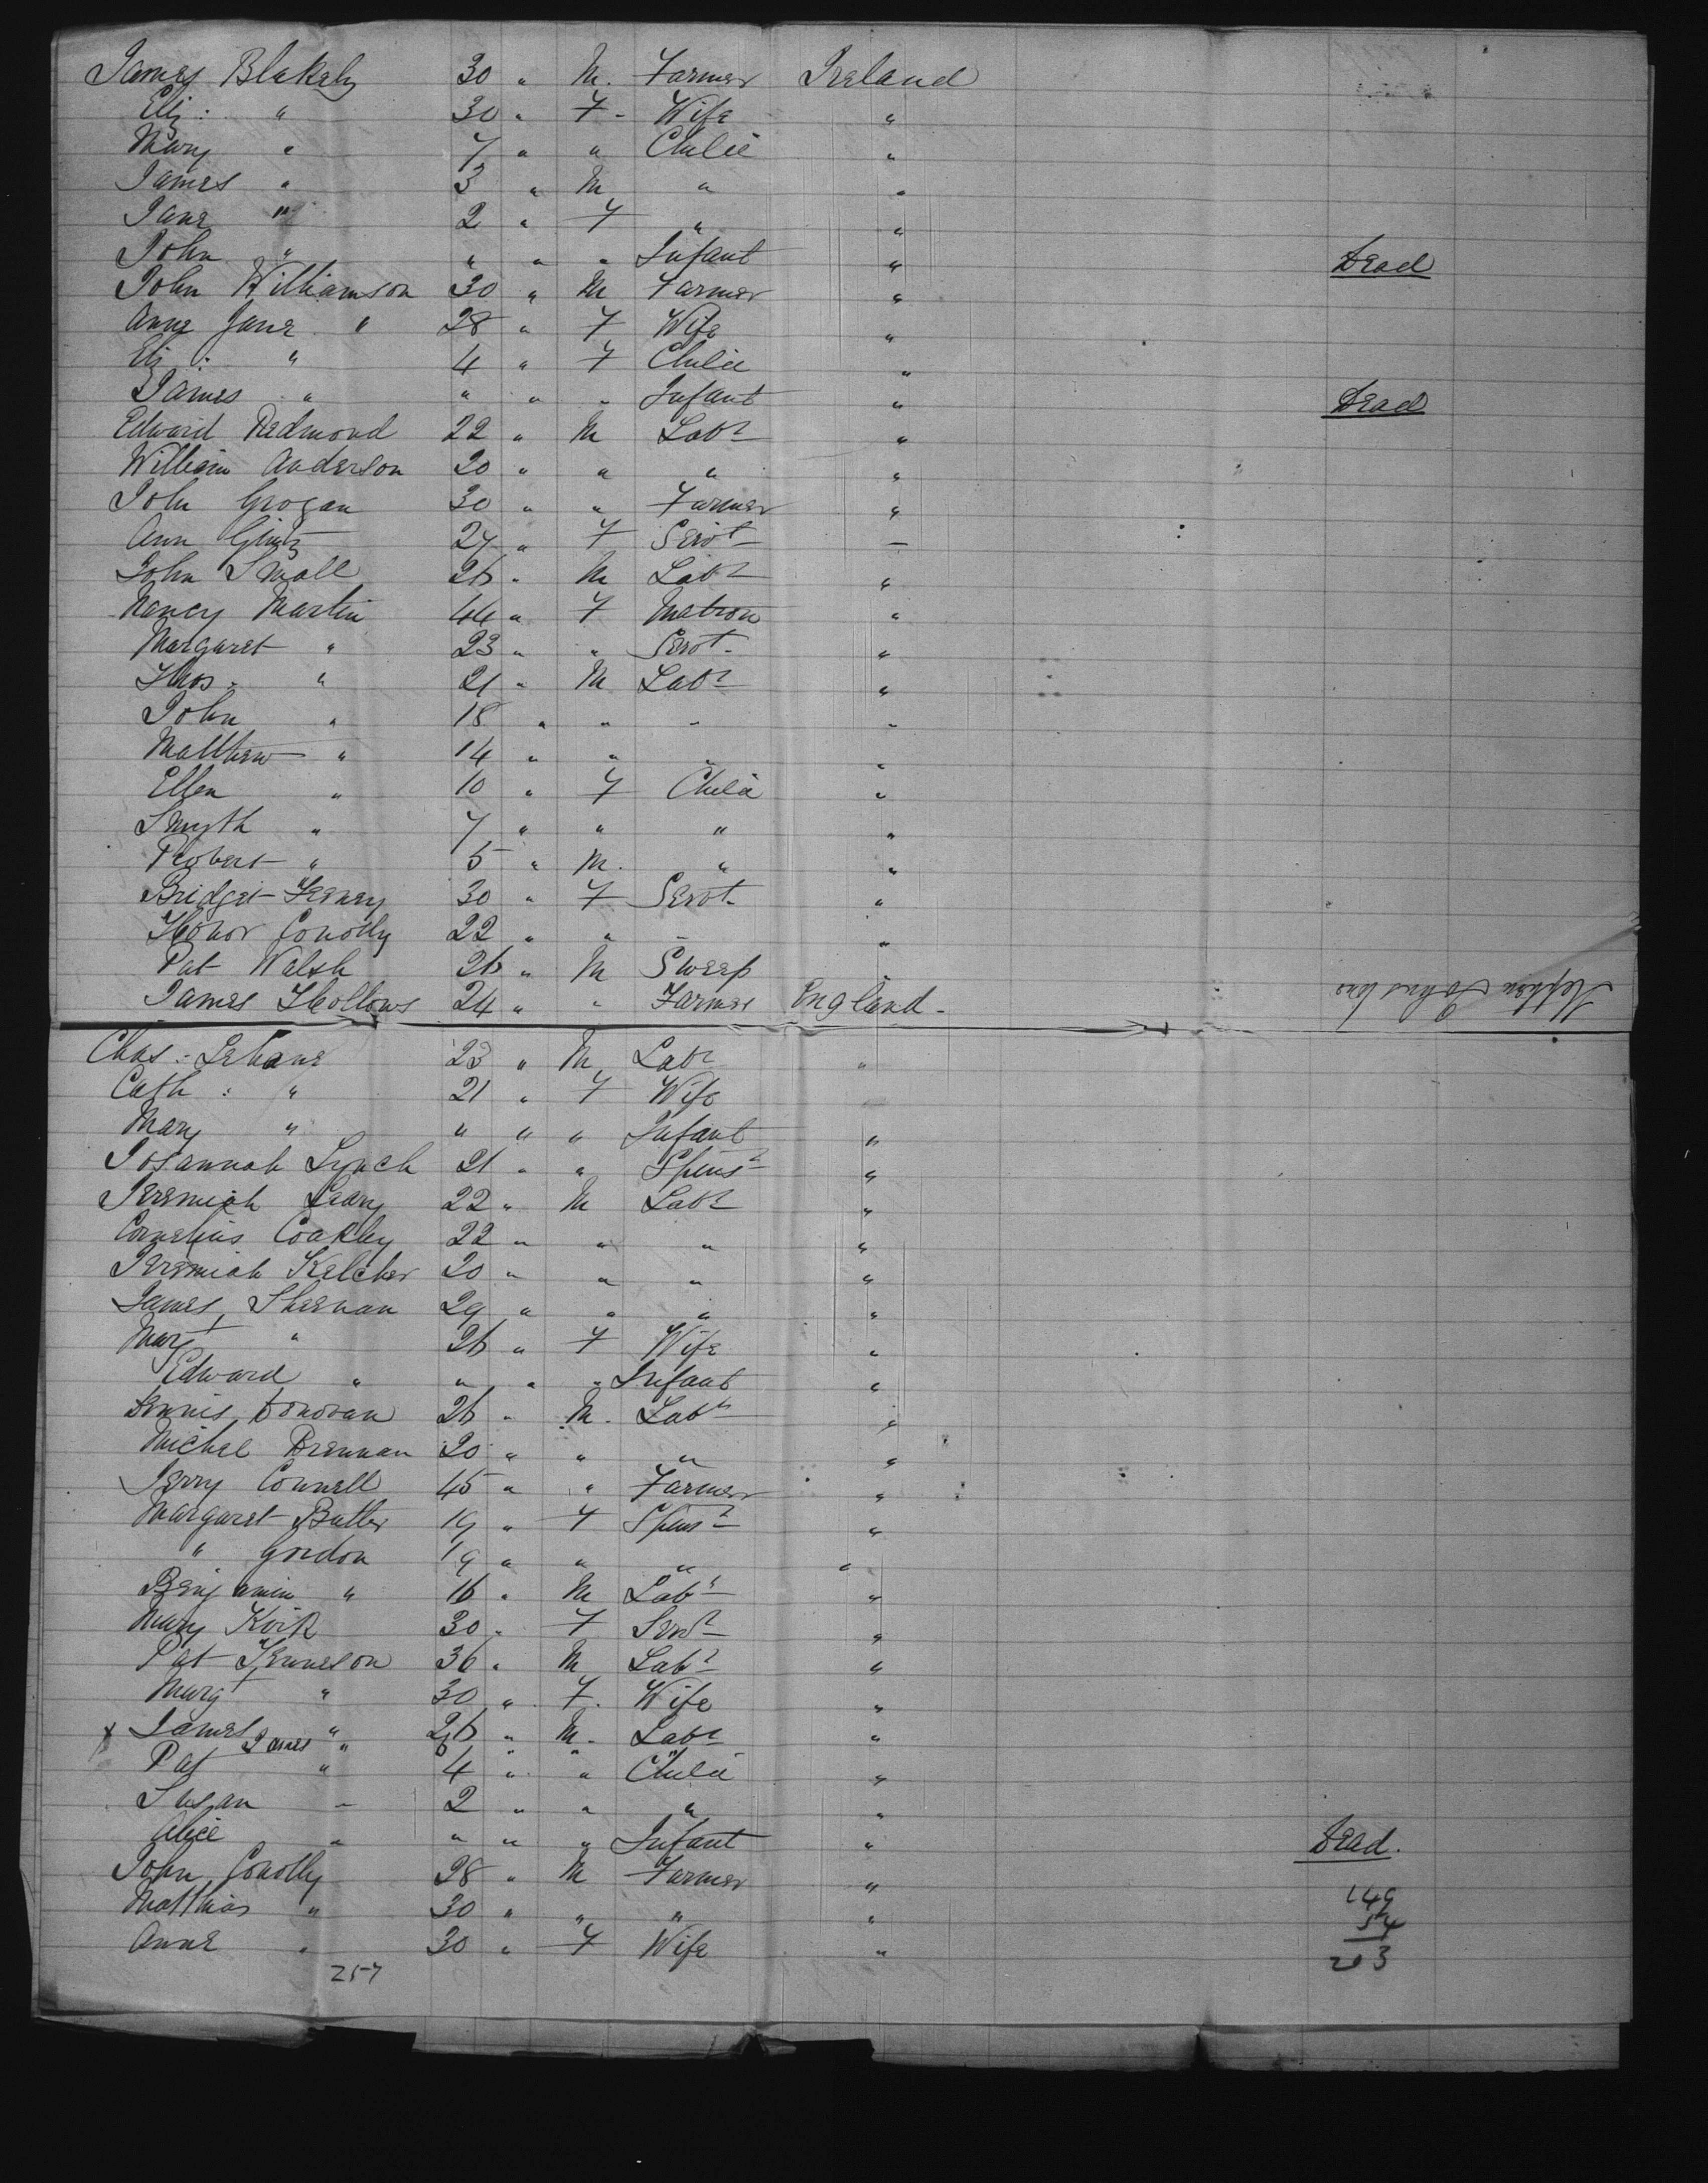 James Blakely 30 " M. Farmer Ireland
Eliz: " 30 " F - Wife "
Mary " 7 " " Child "
James " 3 " M " "
Jane " 2 " F " "
John " " " " Infant " Dead
John Williamson 30 " M Farmer "
Anne Jane " 28 " F Wife "
Eliz: " 4 " F Child "
James " " " " Infant " Dead
Edward Redmond 22 " M Labr "
William Anderson 20 " " " "
John Grogan 30 " " Farmer "
Ann 27 " F Servt —
John Small 26 " M Labr "
Nancy Martin 44 " F Matron "
Margaret " 23 " " Servt. "
Thos. " 21 " M Labr "
John " 18 " " " "
Matthew " 14 " " " "
Ellen " 10 " F Child "
Smyth " 7 " " " "
Robert " 5 " M. " "
Bridget 30 " F Servt. "
Honor Conolly 22 " " " "
Pat Walsh 26 " M Sweep "
James Hollows 24 " " Farmer England -
Stephen Johnstone
Chas: Lehane 23 " M Labr "
Cath: " 21 " F Wife
Mary " " " " Infant "
Josannah Lynch 21 " " Spinsr "
Jeremiah Leary 22 " M Labr "
Cornelius Coakley 22 " " " "
Jeremiah Kelcher 20 " " " "
James Sheenan 29 " " " "
Margt " 26 " F Wife "
Edward " " " " Infant "
Dennis Donovan 26 " M. Labr "
Michael Brennan 20 " " " "
Jerry Connell 45 " " Farmer "
Margaret Butler 19 " F Spinsr "
" Gordon 19 " " " "
Benjamin " 16 " M Labr "
Mary Kirk 30 " F Servt "
Pat Jenneson 36 " M Labr "
Margt " 30 " F. Wife "
x James " 26 " M. Labr "
James " 8 " " " "
Pat " 4 " " Child "
Susan " 2 " " " "
Alice " " " " Infant " Dead.
John Conolly 28 " M Farmer "
Matthias " 30 " " " " 149
Anne " 30 " F Wife " 54
257 203